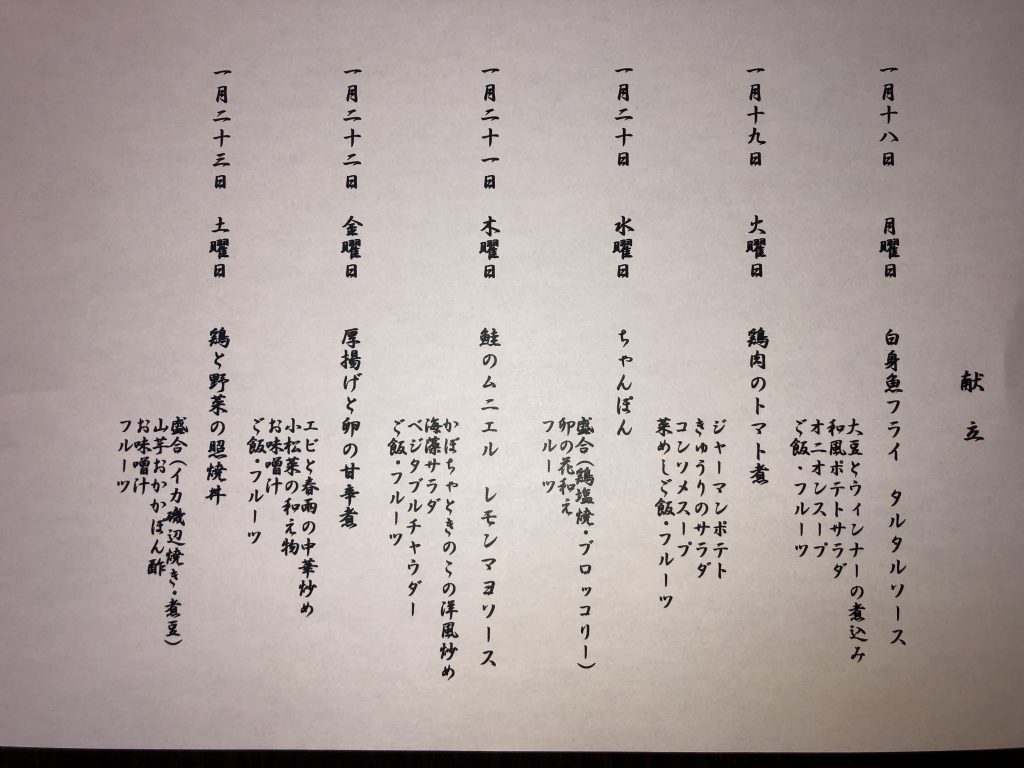 献立
一月十八日 月曜日 白身魚フライ タルタルソース
大豆とウィンナーの煮込み
和風ポテトサラダ
オニオンスープ
ご飯・フルーツ
一月十九日 火曜日 鶏肉のトマト煮
ジャーマンポテト
きゅうりのサラダ
コンソメスープ
菜めしご飯・フルーツ
一月二十日 水曜日 ちゃんぽん
盛合(鶏塩焼・ブロッコリー)
卯の花和え
フルーツ
一月二十一日 木曜日 鮭のムニエル レモンマヨソース
かぼちゃときのこの洋風炒め
海藻サラダ
ベジタブルチャウダー
ご飯・フルーツ
一月二十二日 金曜日 厚揚げと卵の甘辛煮
エビと春雨の中華炒め
小松菜の和え物
お味噌汁
ご飯・フルーツ
一月二十三日 土曜日 鶏と野菜の照焼丼
盛合(イカ磯辺焼き・煮豆)
山芋おかかぽん酢
お味噌汁
フルーツ